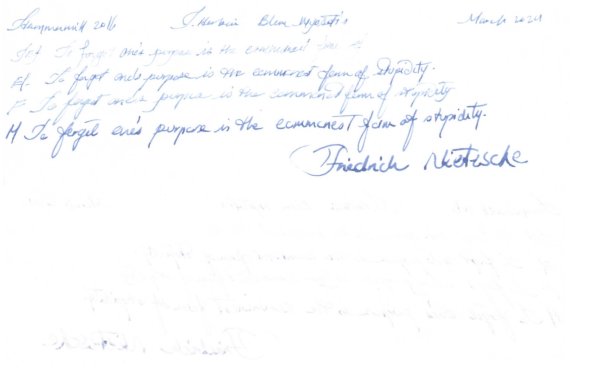 Hammermill 20lb J. Herbin Bleu Myosotis March 2024
To forget one's purpose is the commonest
EF. To forget one's purpose is the commonest form of stupidity.
F To forget one's purpose is the commonest form of stupidity
M To forget one's purpose is the commonest form of stupidity.
Friedrich Nietzsche